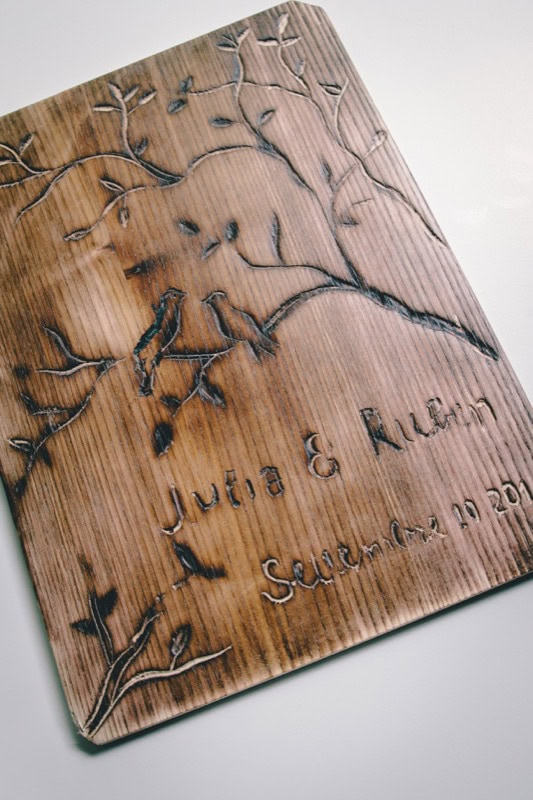 Julia & Ruben
Setiembre 10 201